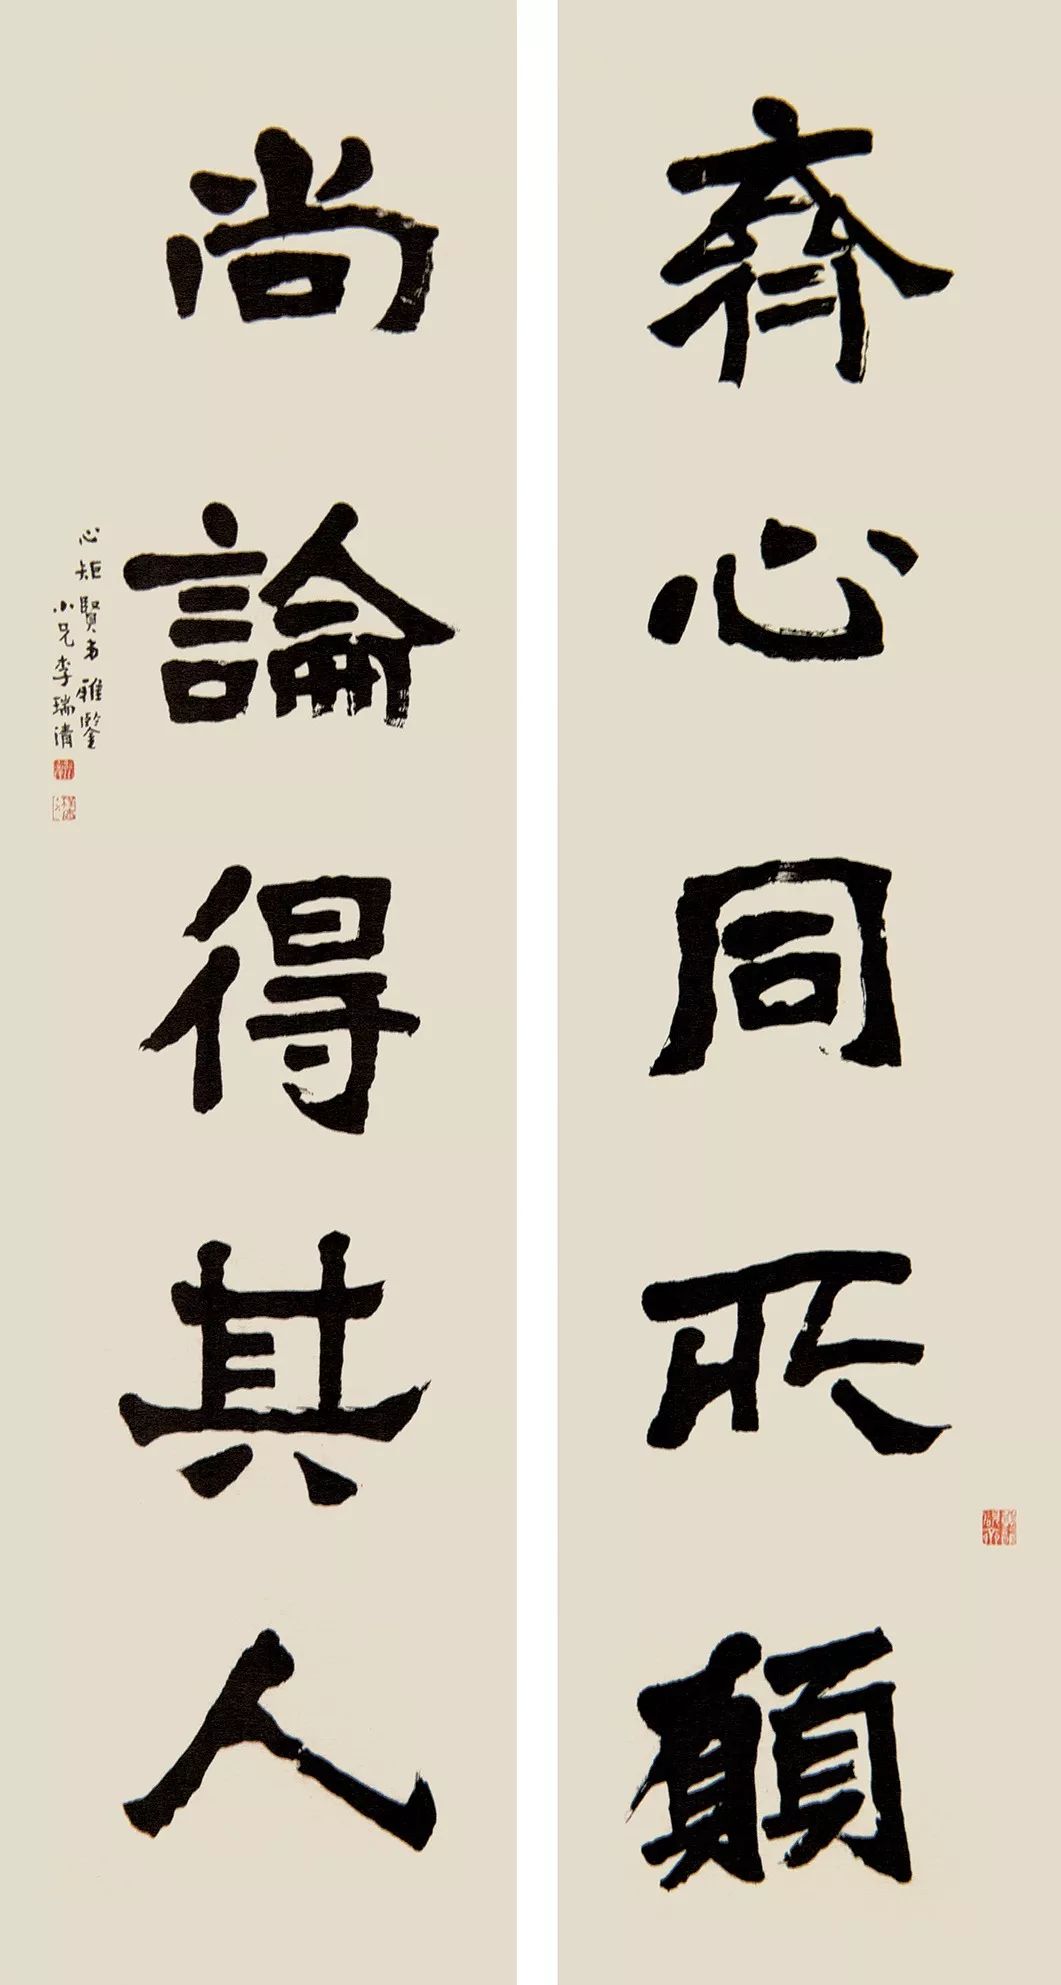 齊心同所願
尚論得其人
心矩賢弟雅鑒
小兄李瑞清